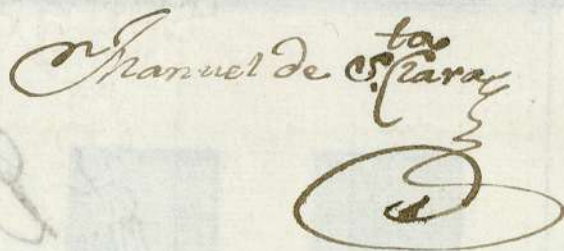 Manuel de S.ta Clara